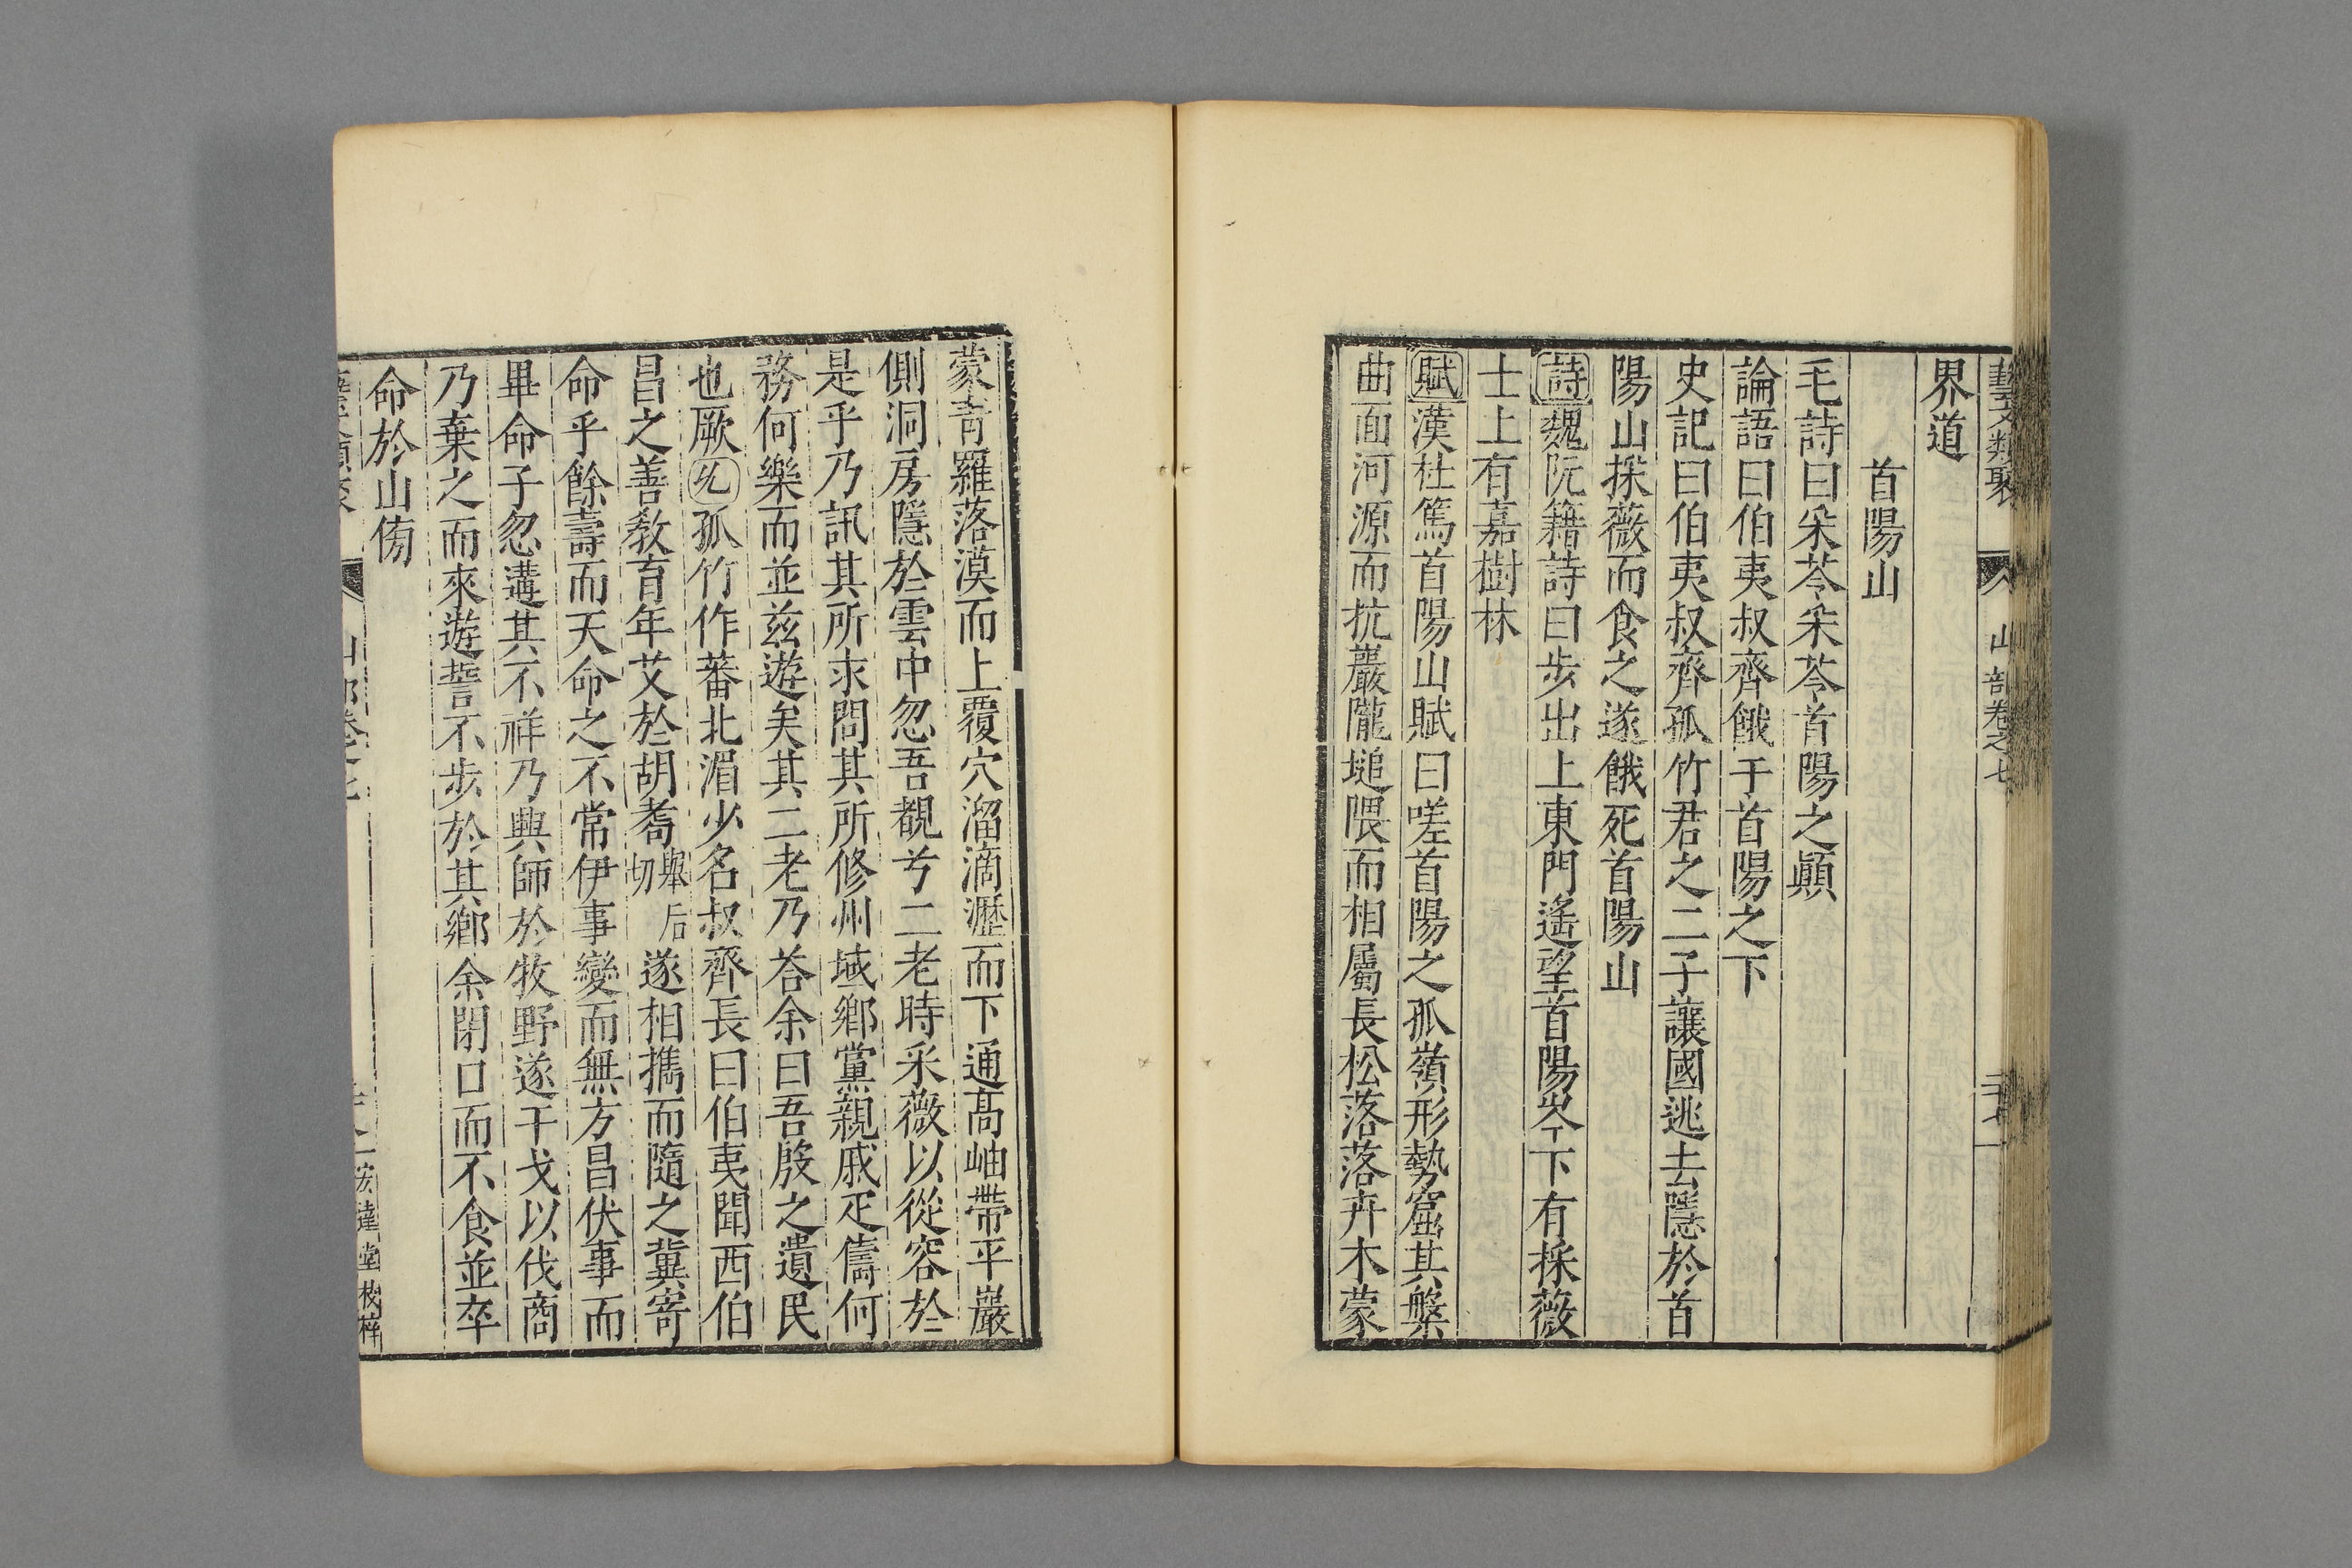 藝文類聚 山部卷之七 二十七
界道
首陽山
毛詩曰采苓采苓首陽之顚
論語曰伯夷叔齊餓于首陽之下
史記曰伯夷叔齊孤竹君之二子讓國逃去隱於首
陽山採薇而食之遂餓死首陽山
詩魏阮籍詩曰步出上東門遙望首陽岑下有採薇
士上有嘉樹林
賦漢杜篤首陽山賦曰嗟首陽之孤嶺形勢窟其槃
曲面河源而抗巖隴塠隈而相屬長松落落卉木蒙
蒙青羅落漠而上覆穴溜滴瀝而下通高岫帶平巖
側洞房隱於雲中忽吾覩兮二老時采薇以從容於
是乎乃訊其所求問其所修州域鄉黨親戚疋儔何
務何樂而並兹遊矣其二老乃荅余曰吾殷之遺民
也厥㐹孤竹作蕃北湄少名叔齊長曰伯夷聞西伯
昌之善敎育年艾於胡耉舉后切遂相擕而隨之冀寄
命乎餘壽而天命之不常伊事變而無方昌伏事而
畢命子忽遘其不祥乃興師於牧野遂干戈以伐商
乃棄之而來遊誓不步於其鄉余閉口而不食並卒
命於山㑴
山部卷之七 宏達堂校梓